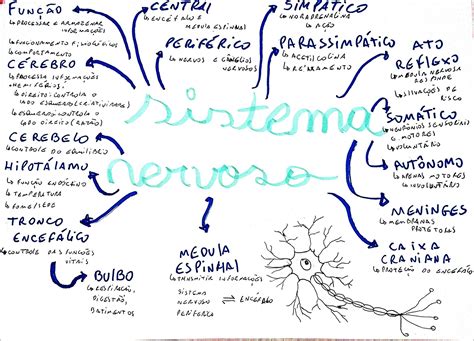 FUNÇÃO
↳ PROCESSAR E ARMAZENAR
INFORMAÇÕES
↳ FUNCIONAMENTO FISIOLÓGICO
↳ COMPORTAMENTO
CENTRAL
↳ ENCÉFALO E
MEDULA ESPINHAL
PERIFÉRICO
↳ NERVOS E GÂNGLIOS
NERVOSOS
SIMPÁTICO
↳ NORADRENALINA
↳ AÇÃO
PARASSIMPÁTICO
↳ ACETILCOLINA
↳ RELAXAMENTO
ATO
REFLEXO
↳ MEDULA NERVOSA
RESPONDE
↳ SITUAÇÕES DE
RISCO
CÉREBRO
↳ PROCESSA INFORMAÇÕES
↳ HEMISFÉRIOS:
↳ DIREITO: CONTROLA O
LADO ESQUERDO (CRIATIVIDADE)
↳ ESQUERDO: CONTROLA O
LADO DIREITO (RAZÃO)
sistema
nervoso
SOMÁTICO
↳ NEURÔNIOS SENSORIAIS
E MOTORES
↳ VOLUNTÁRIO
CEREBELO
↳ CONTROLE DO EQUILÍBRIO
AUTÔNOMO
↳ NEURÔ. MOTORES
↳ INVOLUNTÁRIO
HIPOTÁLAMO
↳ FUNÇÃO ENDÓCRINO
↳ TEMPERATURA
↳ FOME/SEDE
MENINGES
↳ MEMBRANAS
PROTETORAS
TRONCO
ENCEFÁLICO
↳ CONTROLE DAS FUNÇÕES
VITAIS
CAIXA
CRANIANA
↳ PROTEÇÃO DO ENCÉFALO
BULBO
↳ RESPIRAÇÃO,
DIGESTÃO,
BATIMENTOS
MEDULA
ESPINHAL
↳ TRANSMITIR INFORMAÇÕES
SISTEMA
NERVOSO ⇌ ENCÉFALO
PERIFÉRICO